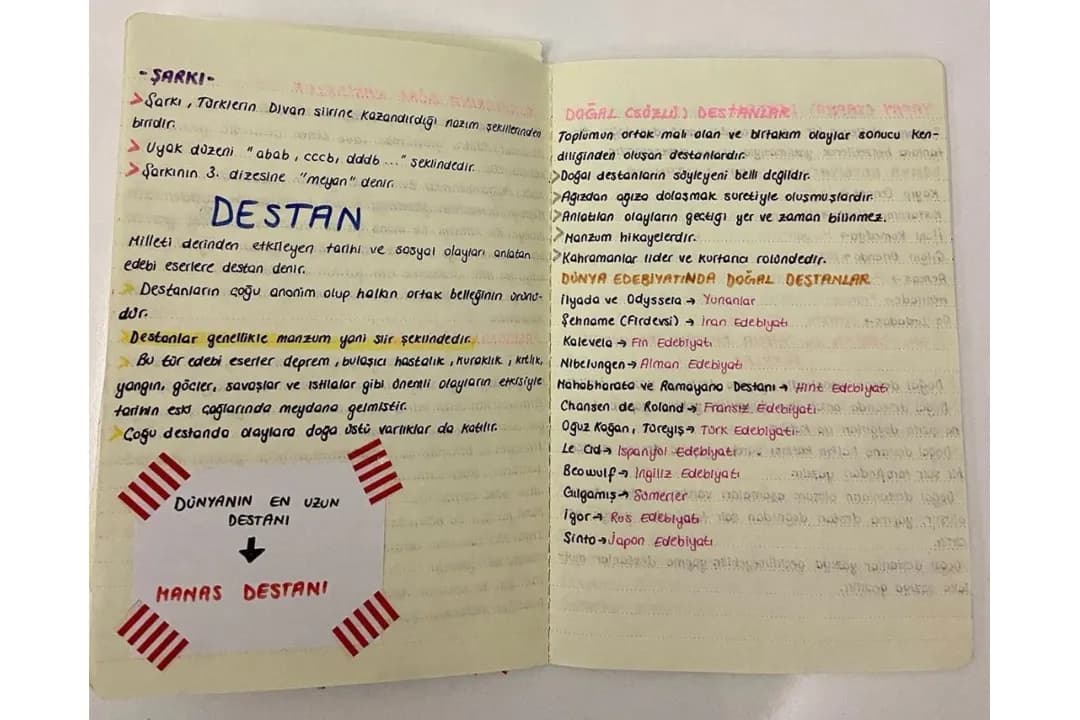 - ŞARKI -
> Şarkı, Türklerin Divan şiirine kazandırdığı nazım şekillerinden
biridir.
> Uyak düzeni "abab, cccb, dddb ..." şeklindedir.
> Şarkının 3. dizesine "meyan" denir.
DESTAN
Milleti derinden etkileyen tarihi ve sosyal olayları anlatan
edebi eserlere destan denir.
> Destanların çoğu anonim olup halkın ortak belleğinin ürünü-
dür.
> Destanlar genellikle manzum yani şiir şeklindedir.
> Bu tür edebi eserler deprem, bulaşıcı hastalık, kuraklık, kıtlık,
yangın, göçler, savaşlar ve istilalar gibi önemli olayların etkisiyle
tarihin eski çağlarında meydana gelmiştir.
> Çoğu destanda olaylara doğa üstü varlıklar da katılır.
DÜNYANIN EN UZUN
DESTANI
↓
MANAS DESTANI
DOĞAL (SÖZLÜ) DESTANLAR
Toplumun ortak malı olan ve birtakım olaylar sonucu ken-
diliğinden oluşan destanlardır.
> Doğal destanların söyleyeni belli değildir.
> Ağızdan ağıza dolaşmak suretiyle oluşmuşlardır.
> Anlatılan olayların geçtiği yer ve zaman bilinmez.
> Manzum hikayelerdir.
> Kahramanlar lider ve kurtarıcı rolündedir.
DÜNYA EDEBİYATINDA DOĞAL DESTANLAR
İlyada ve Odysseia → Yunanlar
Şehname (Firdevsi) → İran Edebiyatı
Kalevela → Fin Edebiyatı
Nibelungen → Alman Edebiyatı
Mahabharata ve Ramayana Destanı → Hint Edebiyatı
Chansen de Roland → Fransız Edebiyatı
Oğuz Kağan, Türeyiş → Türk Edebiyatı
Le Cid → İspanyol Edebiyatı
Beowulf → İngiliz Edebiyatı
Gılgamış → Sümerler
İgor → Rus Edebiyatı
Şinto → Japon Edebiyatı